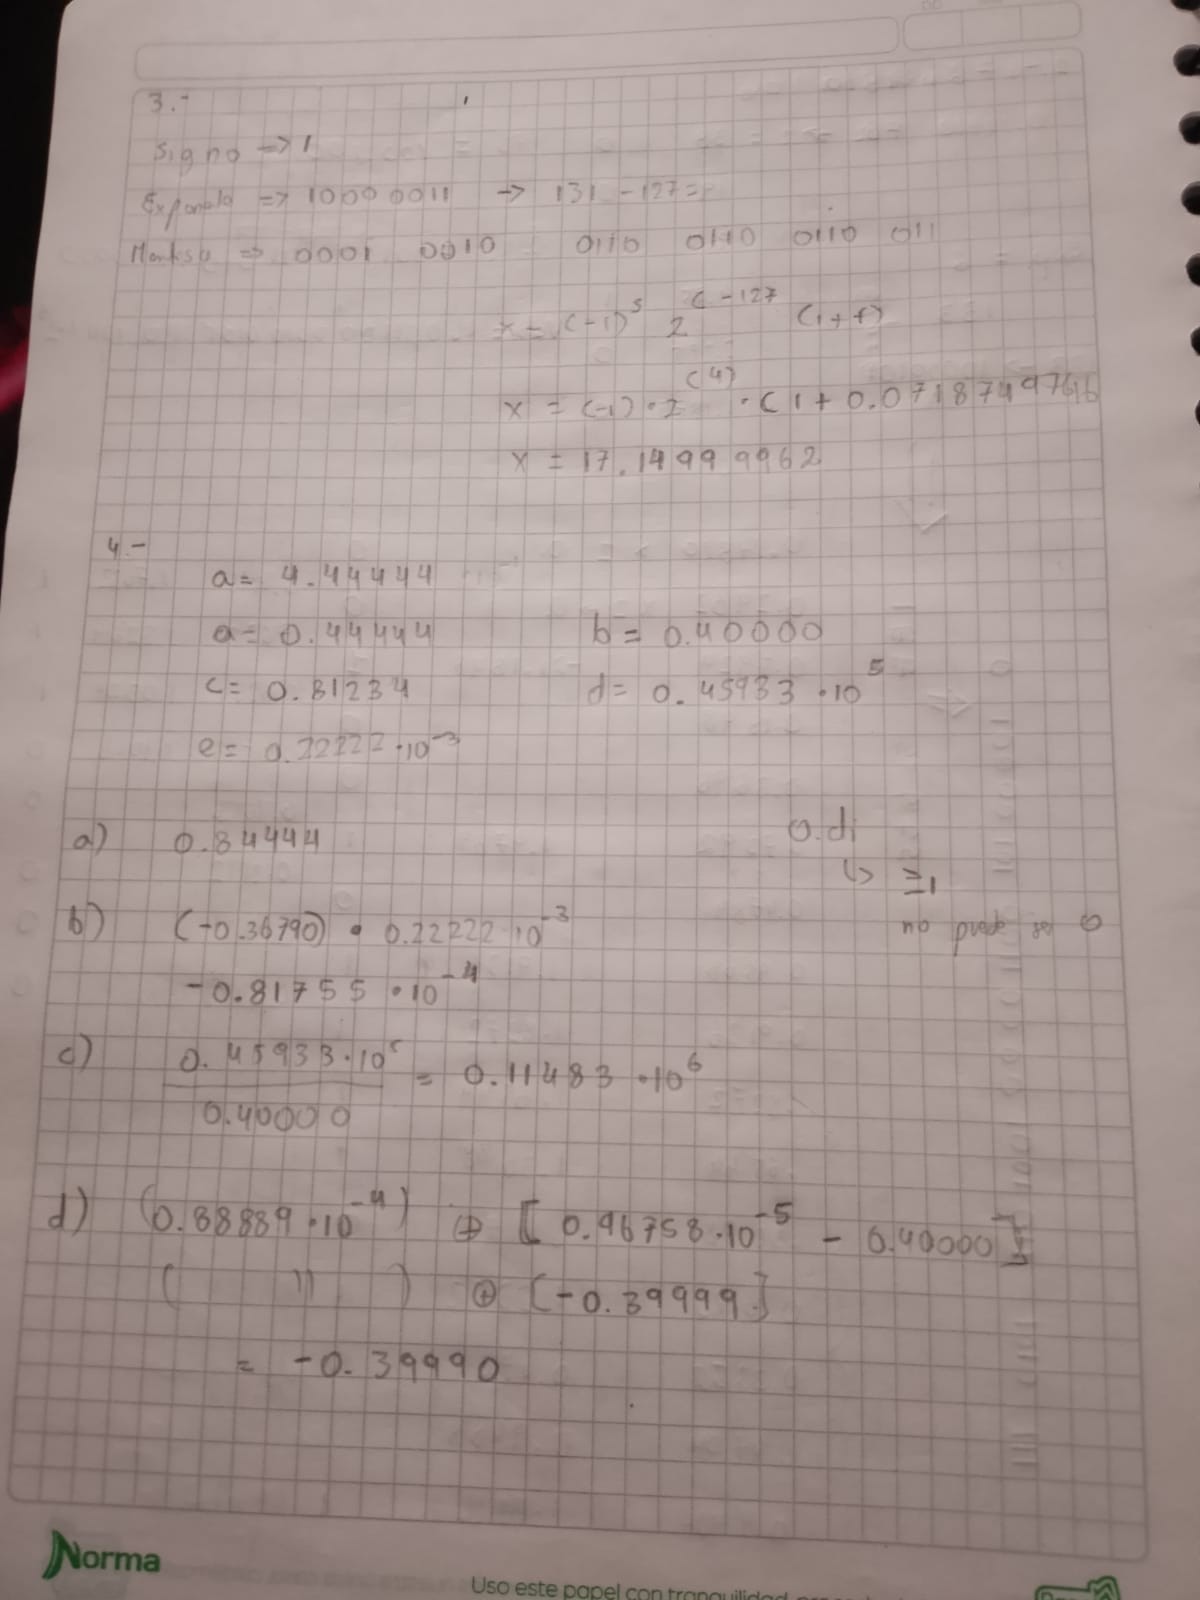 3.-
Signo → 1
Exponente => 10000011 → 131 - 127 =
Mantisa => 0001 0010 0110 0110 0110 011
x = (-1)^s 2^(c-127) (1+f)
x = (-1) · 2^(4) · (1 + 0.071874997616
x = 17.14999962
4.-
a = 4.44444
a = 0.44444 b = 0.40000
c = 0.81234 d = 0.45933 · 10^5
e = 0.22222 · 10^-3
a) 0.84444
b) (-0.36790) • 0.22222 · 10^-3
-0.81755 · 10^-4
c) 0.45933 · 10^5 / 0.40000 = 0.11483 · 10^6
d) (0.88889 · 10^-4) ⊕ [0.96758 · 10^-5 - 0.40000]
( 11 ) ⊕ [-0.39999]
= -0.39990
Norma
Uso este papel con tranquilidad,